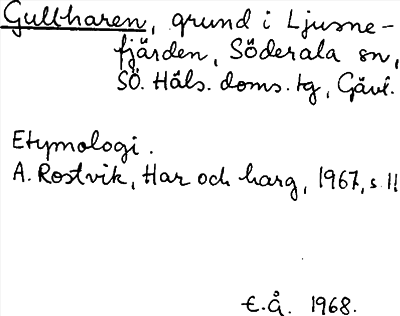 Gullharen, grund i Ljusne-
fjärden, Söderala sn,
SÖ. Häls. doms. tg, Gävl.
Etymologi.
A. Rostvik, Har och harg, 1967, s. 11
E.Å. 1968.